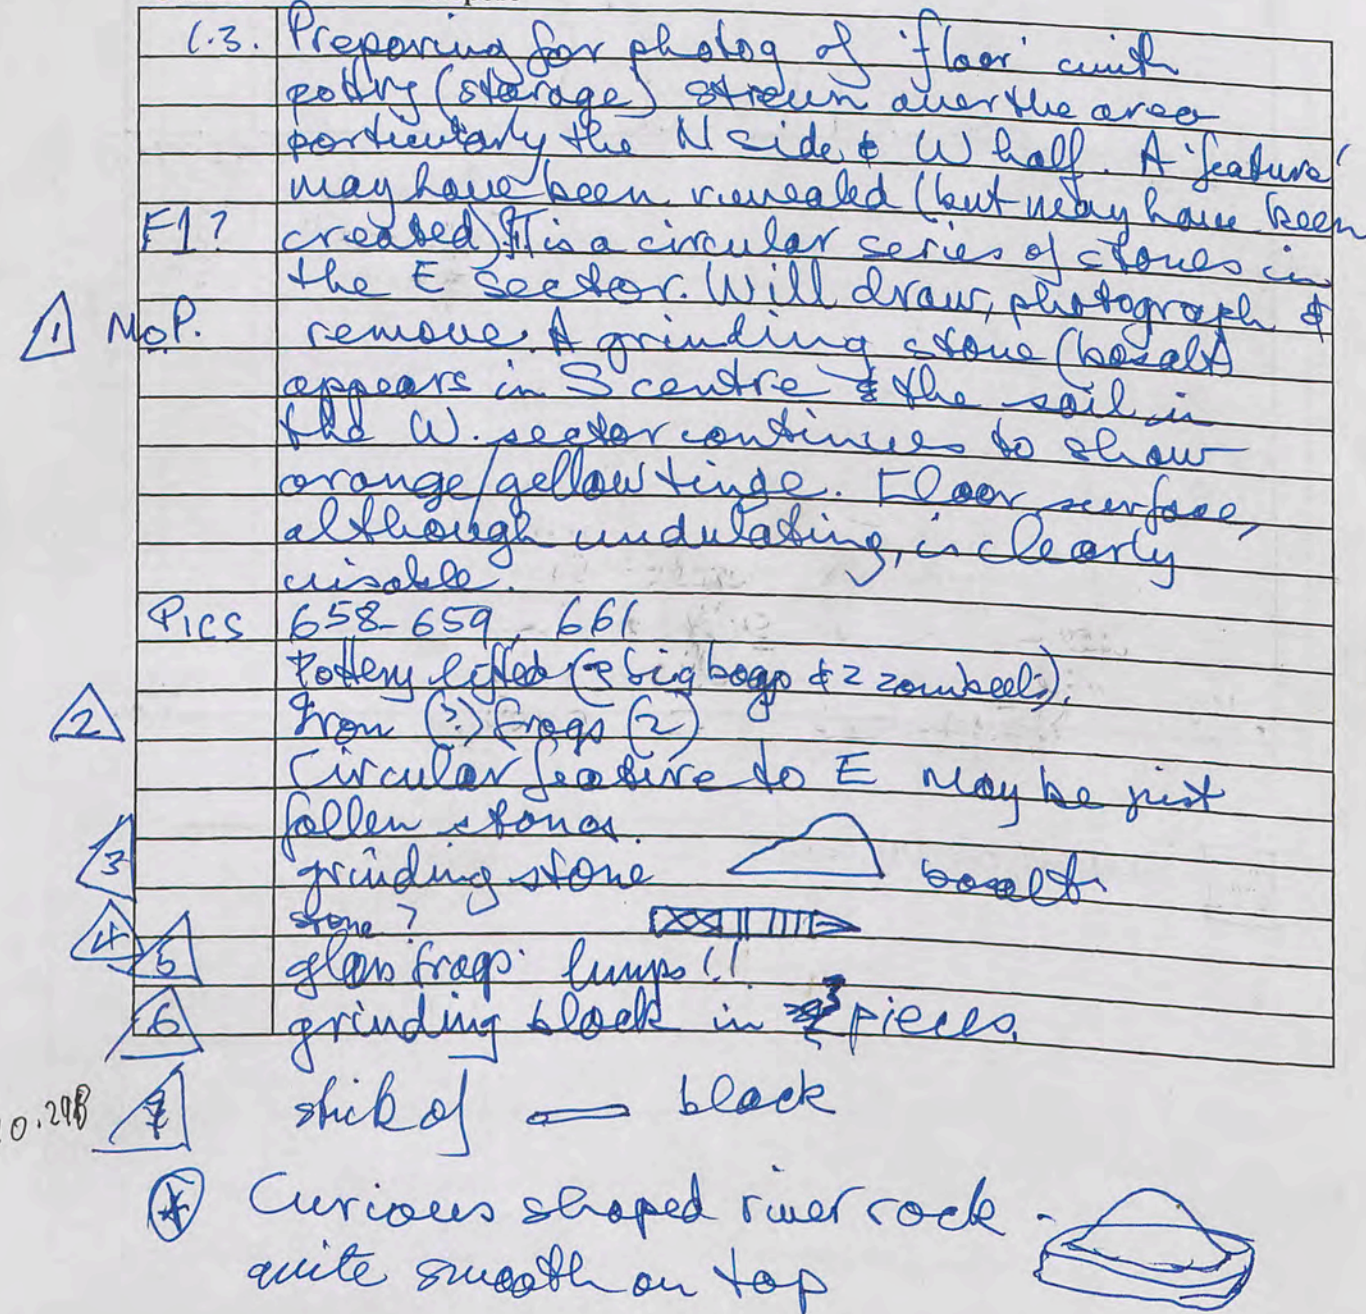 1.3. Preparing for photog of 'floor' with
pottery (storage) strewn over the area
particularly the N side & W half. A 'feature'
may have been revealed (but may have been
F1? created) It is a circular series of stones in
the E Sector. Will draw, photograph &
1 M.o.P. remove. A grinding stone (basalt)
appears in S centre & the soil in
the W. sector continues to show
orange/yellow tinge. Floor surface,
although undulating, is clearly
visable.
Pics 658-659, 661
Pottery lifted ( big bags & 2 zombeels).
2 Iron (?) frags (2)
Circular feature to E may be just
fallen stones.
3 grinding stone basalt
4 stone?
5 glass frags. lumps!!
6 grinding block in 3 pieces.
0.298 7 stick of black
* Curious shaped river rock -
quite smooth on top